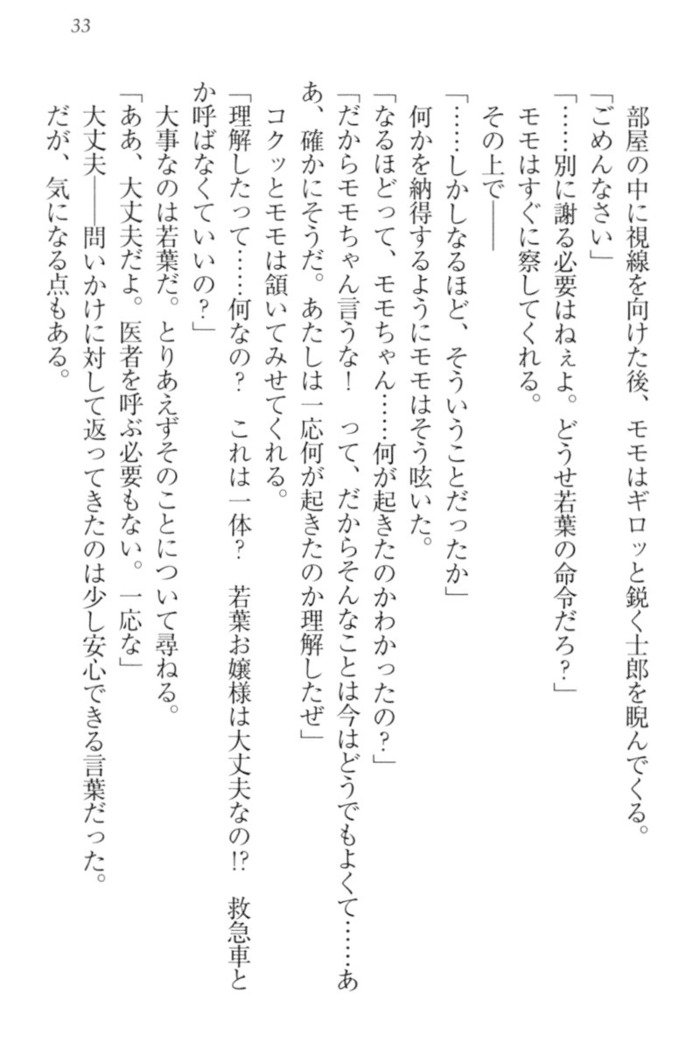 33
部屋の中に視線を向けた後、モモはギロッと鋭く士郎を睨んでくる。
「ごめんなさい」
「……別に謝る必要はねぇよ。どうせ若葉の命令だろ？」
モモはすぐに察してくれる。
その上で――
「……しかしなるほど、そういうことだったか」
何かを納得するようにモモはそう呟いた。
「なるほどって、モモちゃん……何が起きたのかわかったの？」
「だからモモちゃん言うな！　って、だからそんなことは今はどうでもよくて……あ
あ、確かにそうだ。あたしは一応何が起きたのか理解したぜ」
コクッとモモは頷いてみせてくれる。
「理解したって……何なの？　これは一体？　若葉お嬢様は大丈夫なの!?　救急車と
か呼ばなくていいの？」
大事なのは若葉だ。とりあえずそのことについて尋ねる。
「ああ、大丈夫だよ。医者を呼ぶ必要もない。一応な」
大丈夫――問いかけに対して返ってきたのは少し安心できる言葉だった。
だが、気になる点もある。